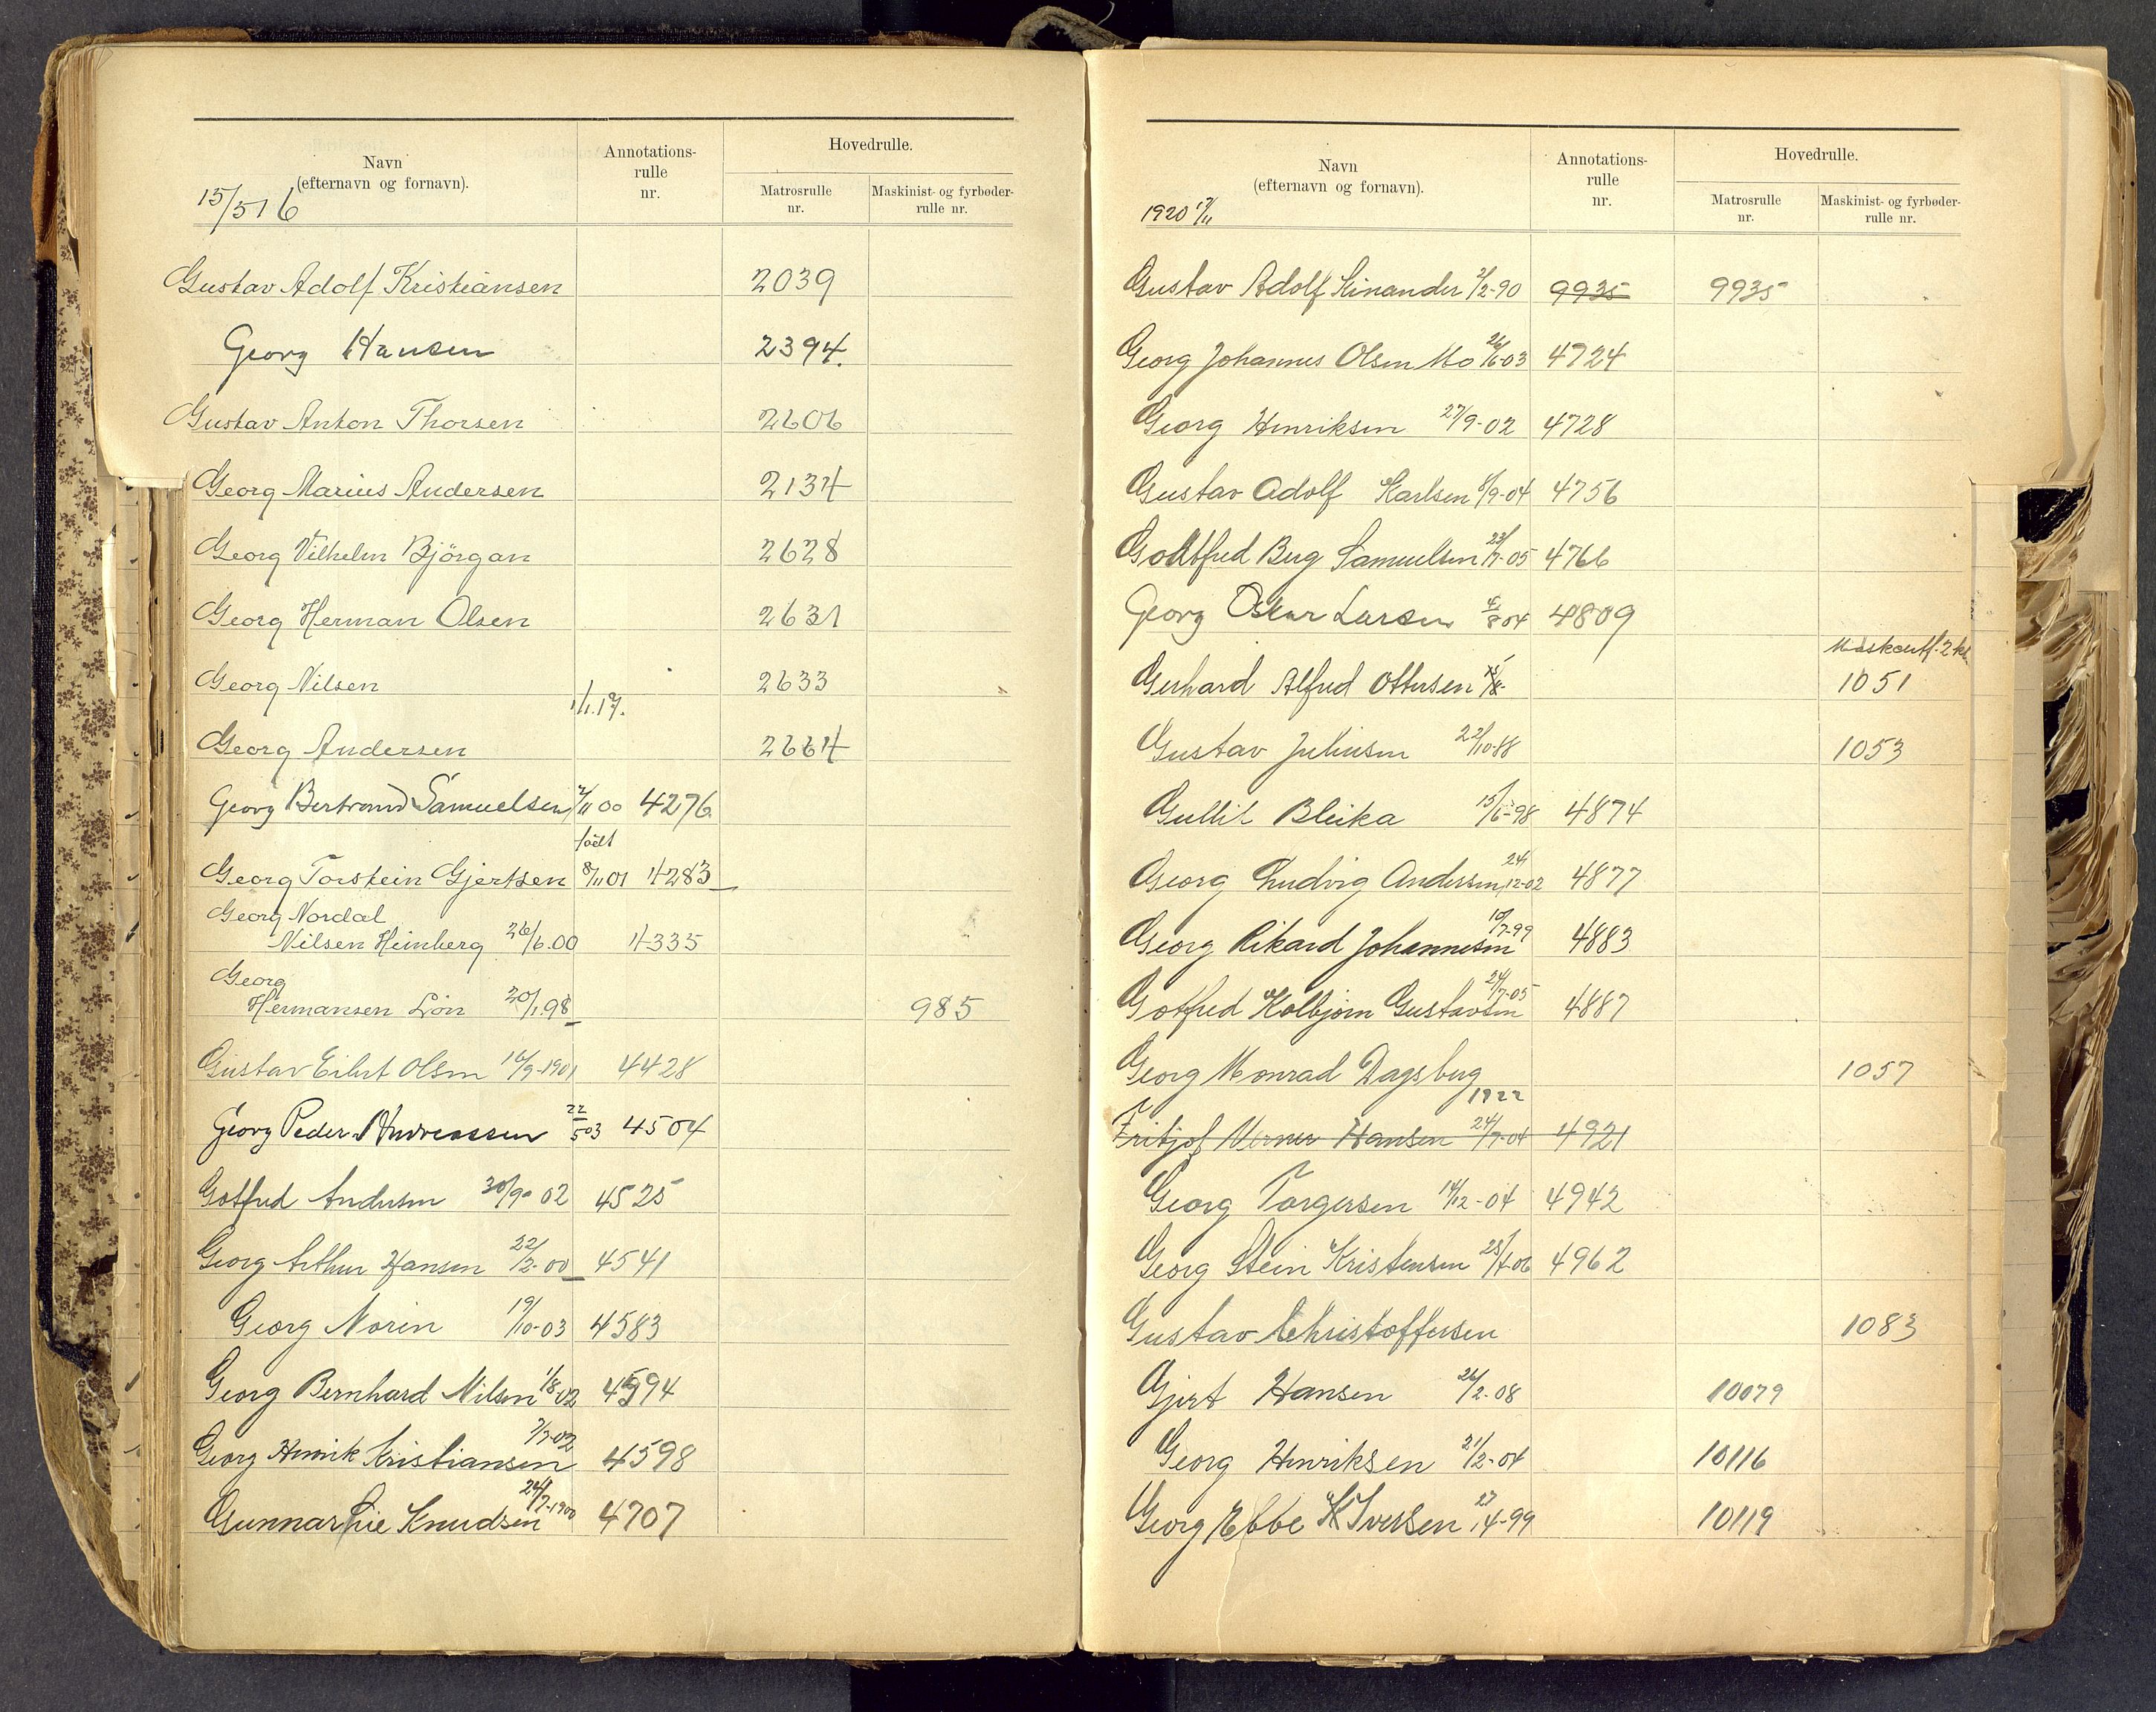 Navn
(efternavn og fornavn).
Annotations-
rulle
nr.
Hovedrulle.
Matrosrulle
nr.
Maskinist- og fyrbøder-
rulle nr.
15/5 16
Gustav Adolf Kristiansen 2039
Georg Hansen 2394.
Gustav Anton Thorsen 2606
Georg Marius Andersen 2134
Georg Vilhelm Björgan 2628
Georg Herman Olsen 2631
Georg Nilsen 2633
1/1.17.
Georg Andersen 2664
Georg Bertrand Samuelsen 2/11 00 4276
født
Georg Torstein Gjertsen 8/11 01 4283
Georg Nordal
Nilsen Heimberg 26/6.00 4335
Georg
Hermansen Lön 20/1.98 985
Gustav Eilert Olsen 16/9-1901 4428
Georg Peder Andreassen 22/5 03 4504
Gotfred Andersen 30/9-02 4525
Georg Arthur Hansen 22/2-00 4541
Georg Norin 19/10-03 4583
Georg Bernhard Nilsen 1/8 02 4594
Georg Henrik Kristiansen 7/7-02 4598
Gunnar Lie Knudsen 24/7-1900 4707
Navn
(efternavn og fornavn).
Annotations-
rulle
nr.
Hovedrulle.
Matrosrulle
nr.
Maskinist- og fyrbøder-
rulle nr.
1920 17/11
Gustav Adolf Kinander 2/2-90 9935 9935
Georg Johannes Olsen Mo 26/6-03 4724
Georg Henriksen 27/9-02 4728
Gustav Adolf Karlsen 8/9-04 4756
Godtfred Berg Samuelsen 23/7-05 4766
Georg Oskar Larsen 4/8 04 4809
Gerhard Alfred Ottersen 1051
Gustav Juliusen 22/10-88 1053
Gullik Bleika 15/6-98 4874
Georg Ludvig Andersen 24/12-02 4877
Georg Rikard Johannesen 10/7-99 4883
Gotfred Kolbjørn Gustavsen 24/7-05 4887
Georg Monrad Dagsberg 1057
1922
Fritjof Werner Hansen 24/7-04 4921
Georg Torgersen 14/12-04 4942
Georg Stein Kristensen 25/1-06 4962
Gustav Christoffersen 1083
Gjert Hansen 26/2-08 10079
Georg Henriksen 21/2-04 10116
Georg Ebbe K Iversen 27/4-99 10119